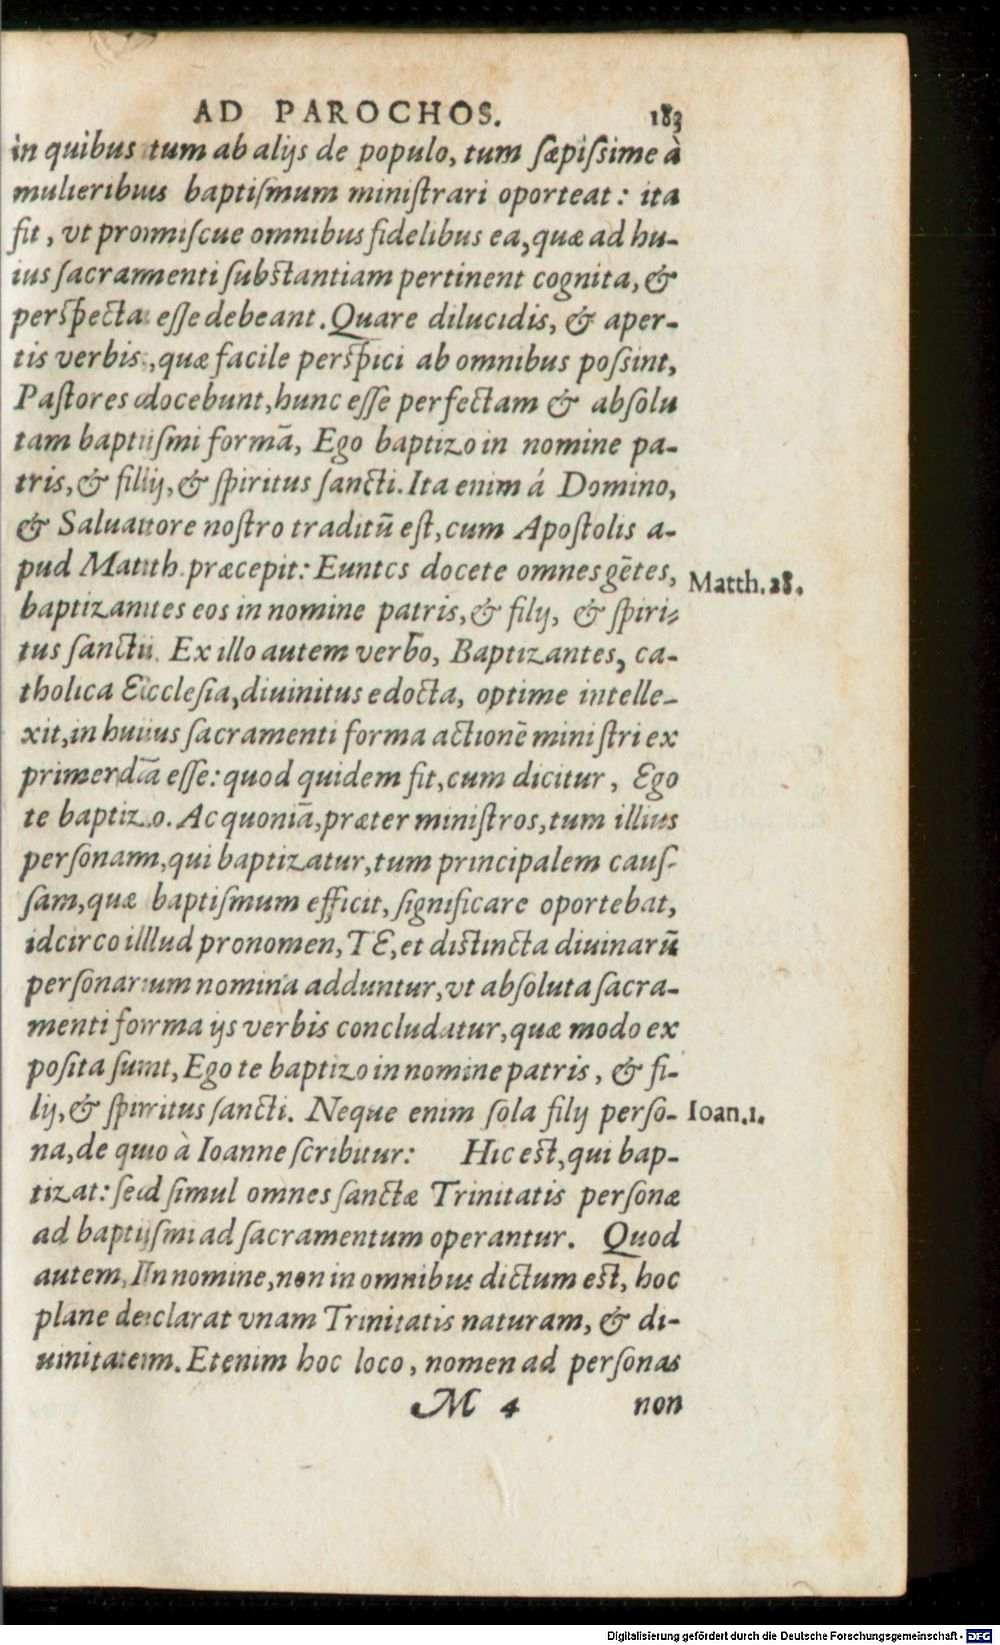 AD PAROCHOS. 183
in quibus tum ab alijs de populo, tum sæpissime à
mulieribus baptismum ministrari oporteat: ita
fit, vt promiscue omnibus fidelibus ea, quæ ad hu-
ius sacramenti substantiam pertinent cognita, &
perspecta esse debeant. Quare dilucidis, & aper-
tis verbis, quæ facile perspici ab omnibus possint,
Pastores docebunt, hunc esse perfectam & absolu
tam baptismi formā, Ego baptizo in nomine pa-
tris, & filij, & spiritus sancti. Ita enim á Domino,
& Saluatore nostro traditū est, cum Apostolis a-
pud Matth. præcepit: Euntes docete omnes gētes,
Matth. 28.
baptizantes eos in nomine patris, & filij, & spiri-
tus sancti. Ex illo autem verbo, Baptizantes, ca-
tholica Ecclesia, diuinitus edocta, optime intelle-
xit, in huius sacramenti forma actionē ministri ex
primendā esse: quod quidem fit, cum dicitur, Ego
te baptizo. Ac quoniā, præter ministros, tum illius
personam, qui baptizatur, tum principalem caus-
sam, quæ baptismum efficit, significare oportebat,
idcirco illud pronomen, TE, et distincta diuinarū
personarum nomina adduntur, vt absoluta sacra-
menti forma ijs verbis concludatur, quæ modo ex
posita sunt, Ego te baptizo in nomine patris, & fi-
lij, & spiritus sancti. Neque enim sola filij perso-
Ioan. 1.
na, de quo à Ioanne scribitur: Hic est, qui bap-
tizat: sed simul omnes sanctæ Trinitatis personæ
ad baptismi ad sacramentum operantur. Quod
autem, In nomine, non in omnibus dictum est, hoc
plane declarat vnam Trinitatis naturam, & di-
uinitatem. Etenim hoc loco, nomen ad personas
M 4 non
Digitalisierung gefördert durch die Deutsche Forschungsgemeinschaft - DFG